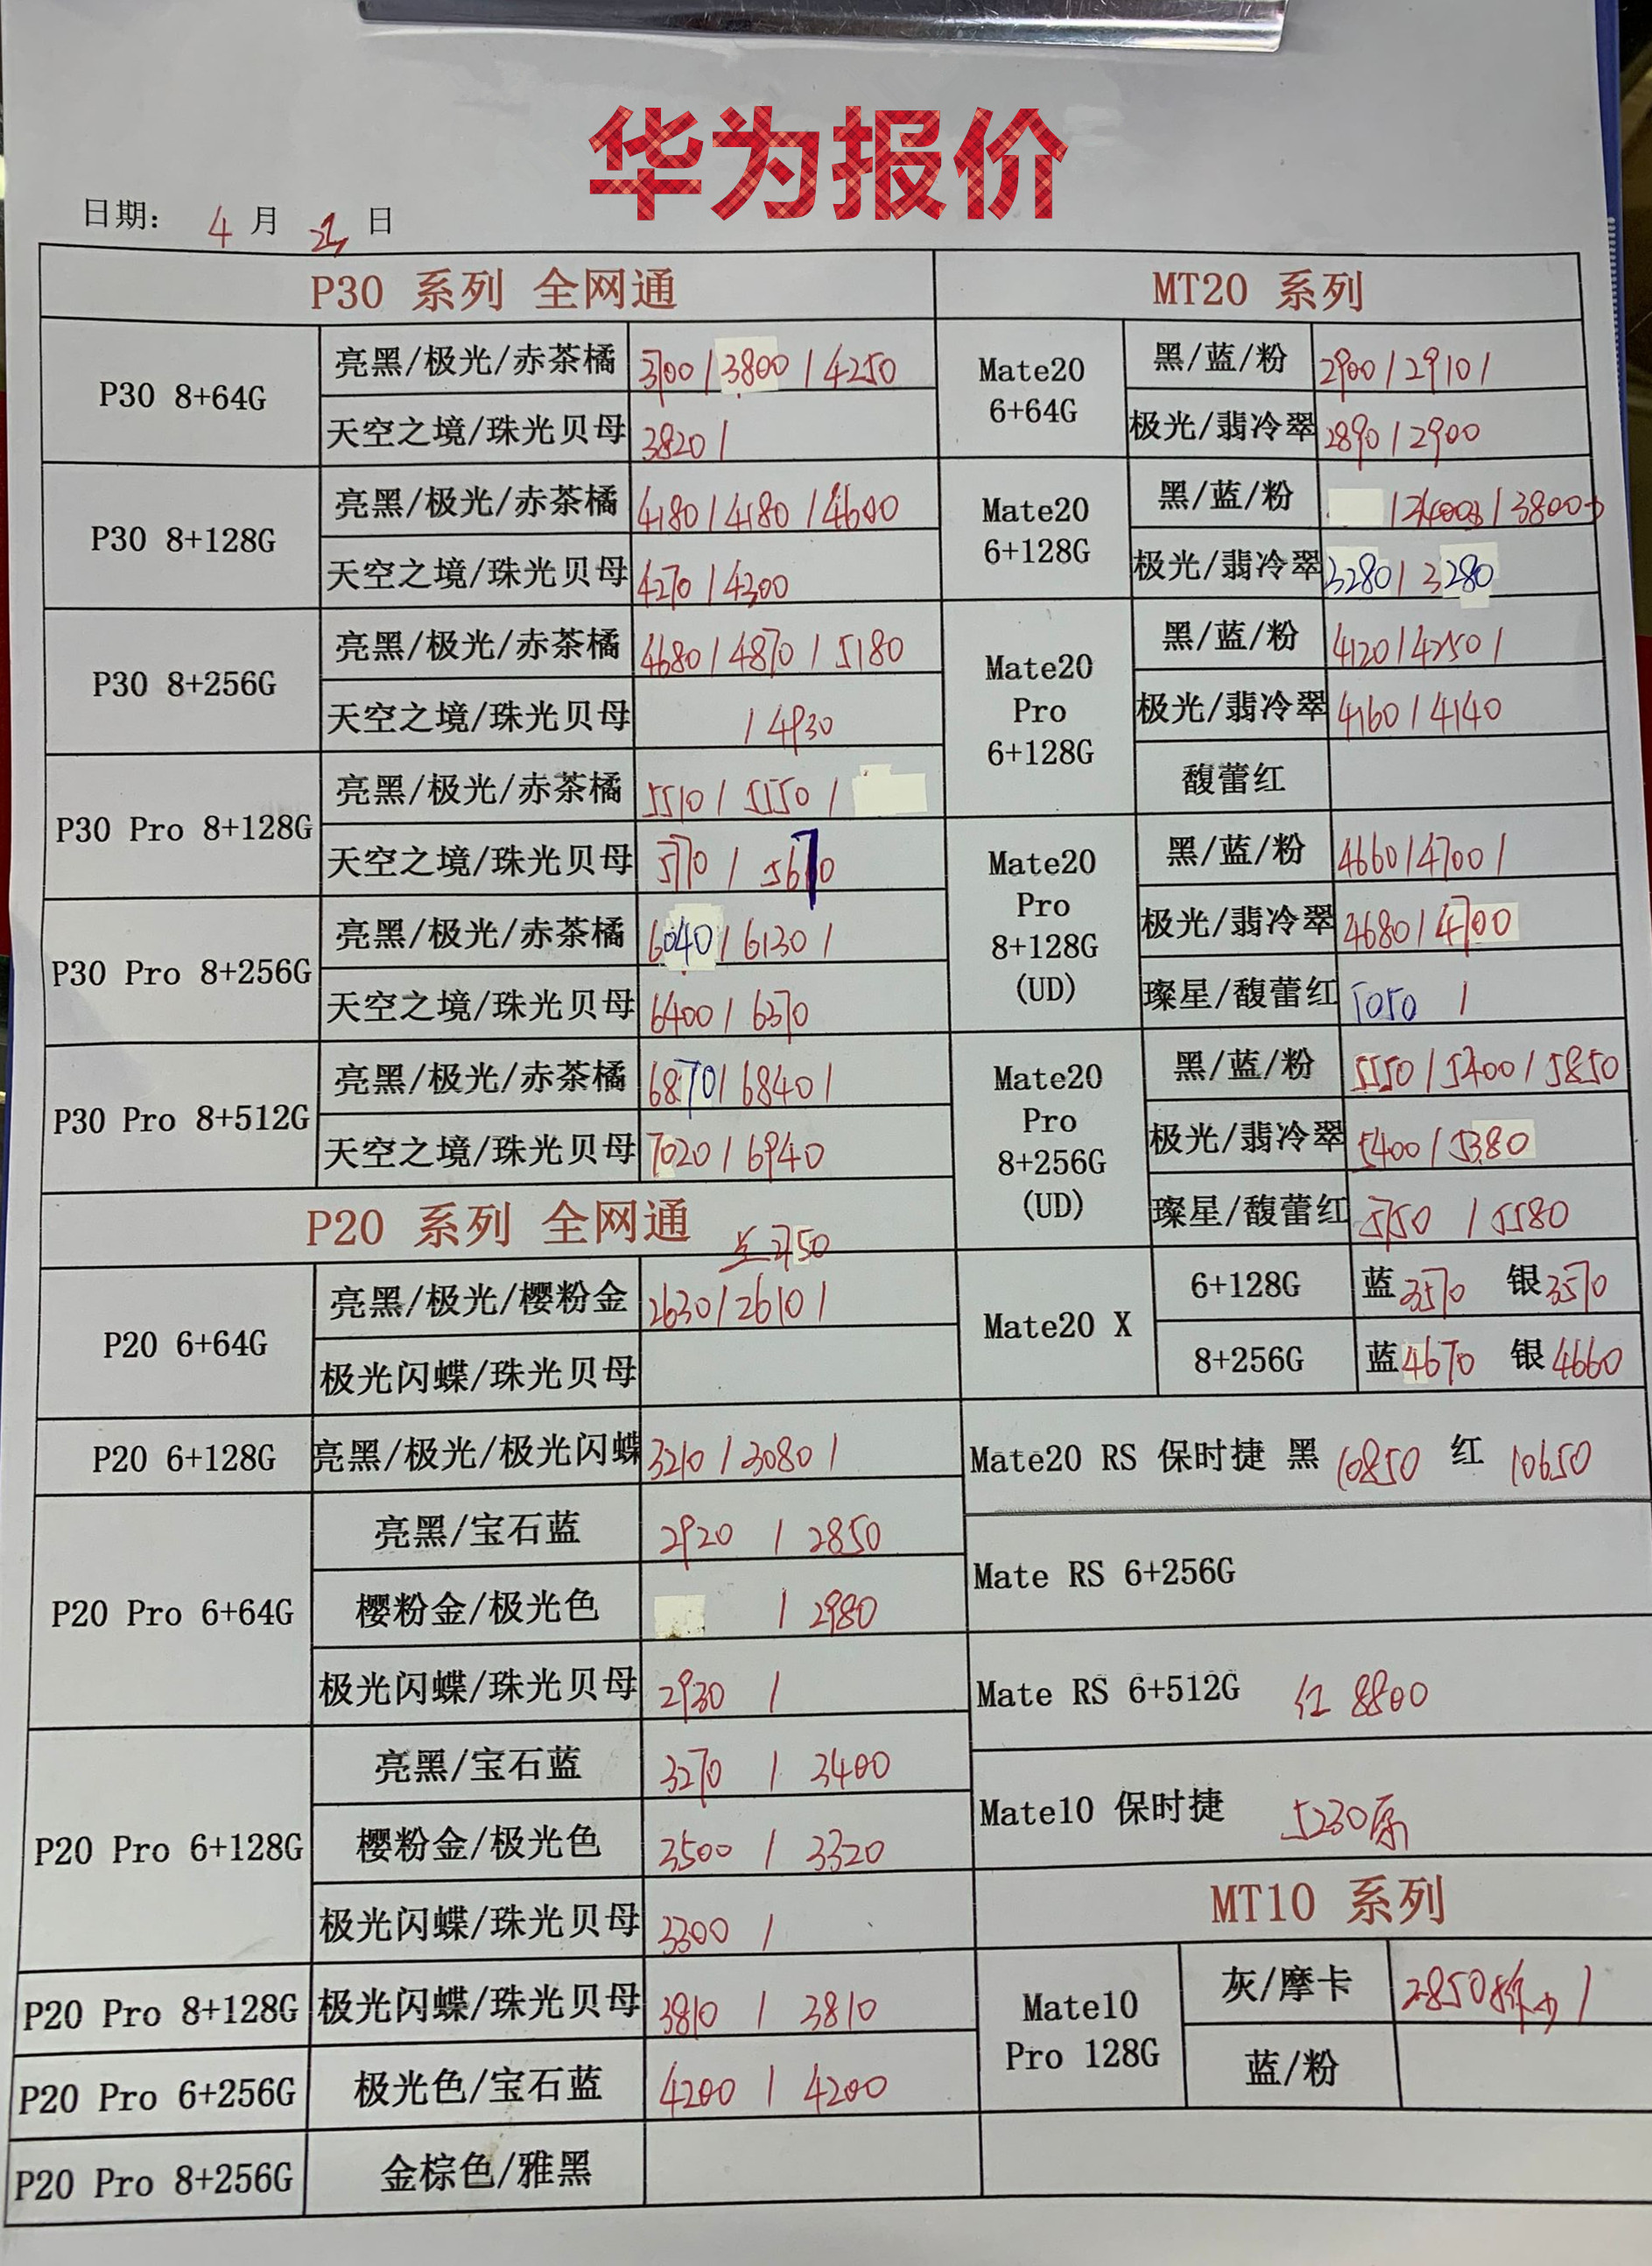 华为报价
日期: 4 月 日
P30 系列 全网通
P30 8+64G
亮黑/极光/赤茶橘 3700 / 3800 / 4250
天空之境/珠光贝母 3820 /
P30 8+128G
亮黑/极光/赤茶橘 4180 / 4180 / 4600
天空之境/珠光贝母 4270 / 4300
P30 8+256G
亮黑/极光/赤茶橘 4680 / 4870 / 5180
天空之境/珠光贝母 / 4930
P30 Pro 8+128G
亮黑/极光/赤茶橘 5510 / 5550 /
天空之境/珠光贝母 5770 / 5670
P30 Pro 8+256G
亮黑/极光/赤茶橘 6040 / 6130 /
天空之境/珠光贝母 6400 / 6370
P30 Pro 8+512G
亮黑/极光/赤茶橘 6870 / 6840 /
天空之境/珠光贝母 7020 / 6940
P20 系列 全网通
2750
P20 6+64G
亮黑/极光/樱粉金 2630 / 2610 /
极光闪蝶/珠光贝母
P20 6+128G
亮黑/极光/极光闪蝶 3210 / 3080 /
P20 Pro 6+64G
亮黑/宝石蓝 2920 / 2850
樱粉金/极光色 / 2980
极光闪蝶/珠光贝母 2930 /
P20 Pro 6+128G
亮黑/宝石蓝 3270 / 3400
樱粉金/极光色 3500 / 3320
极光闪蝶/珠光贝母 3300 /
P20 Pro 8+128G
极光闪蝶/珠光贝母 3810 / 3810
P20 Pro 6+256G
极光色/宝石蓝 4200 / 4200
P20 Pro 8+256G
金棕色/雅黑
MT20 系列
Mate20
6+64G
黑/蓝/粉 2900 / 2910 /
极光/翡冷翠 2890 / 2900
Mate20
6+128G
黑/蓝/粉 / 3400 / 3800
极光/翡冷翠 3280 / 3280
Mate20
Pro
6+128G
黑/蓝/粉 4120 / 4250 /
极光/翡冷翠 4160 / 4140
馥蕾红
Mate20
Pro
8+128G
(UD)
黑/蓝/粉 4660 / 4700 /
极光/翡冷翠 4680 / 4700
璨星/馥蕾红 5050 /
Mate20
Pro
8+256G
(UD)
黑/蓝/粉 5550 / 5400 / 5850
极光/翡冷翠 5400 / 5380
璨星/馥蕾红 5750 / 5580
Mate20 X
6+128G 蓝 3570 银 3570
8+256G 蓝 4670 银 4660
Mate20 RS 保时捷 黑 10850 红 10650
Mate RS 6+256G
Mate RS 6+512G 红 8800
Mate10 保时捷 5230原
MT10 系列
Mate10
Pro 128G
灰/摩卡 2850 /
蓝/粉